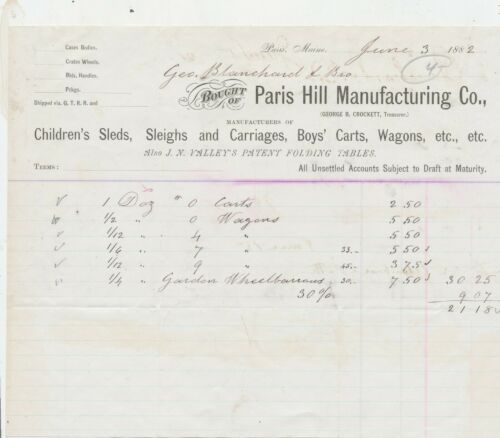 Cases Bodies.
Crates Wheels.
Bdls. Handles.
Pckgs.
Shipped via G. T. R. R. and
Paris, Maine, June 3 1882
4
Geo. Blanchard & Bro
BOUGHT OF Paris Hill Manufacturing Co.,
(GEORGE B. CROCKETT, Treasurer.)
MANUFACTURERS OF
Children's Sleds, Sleighs and Carriages, Boys' Carts, Wagons, etc., etc.
Also J. N. VALLEY'S PATENT FOLDING TABLES.
TERMS: All Unsettled Accounts Subject to Draft at Maturity.
1 Doz " 0 Carts 2 50
1/2 " 0 Wagons 5 50
1/12 " 4 " 5 50
1/6 " 7 " 33.- 5 50
1/12 " 9 " 45.- 3 75
1/4 " Garden Wheelbarrows 30.- 7 50 30 25
30% 9 07
21 18